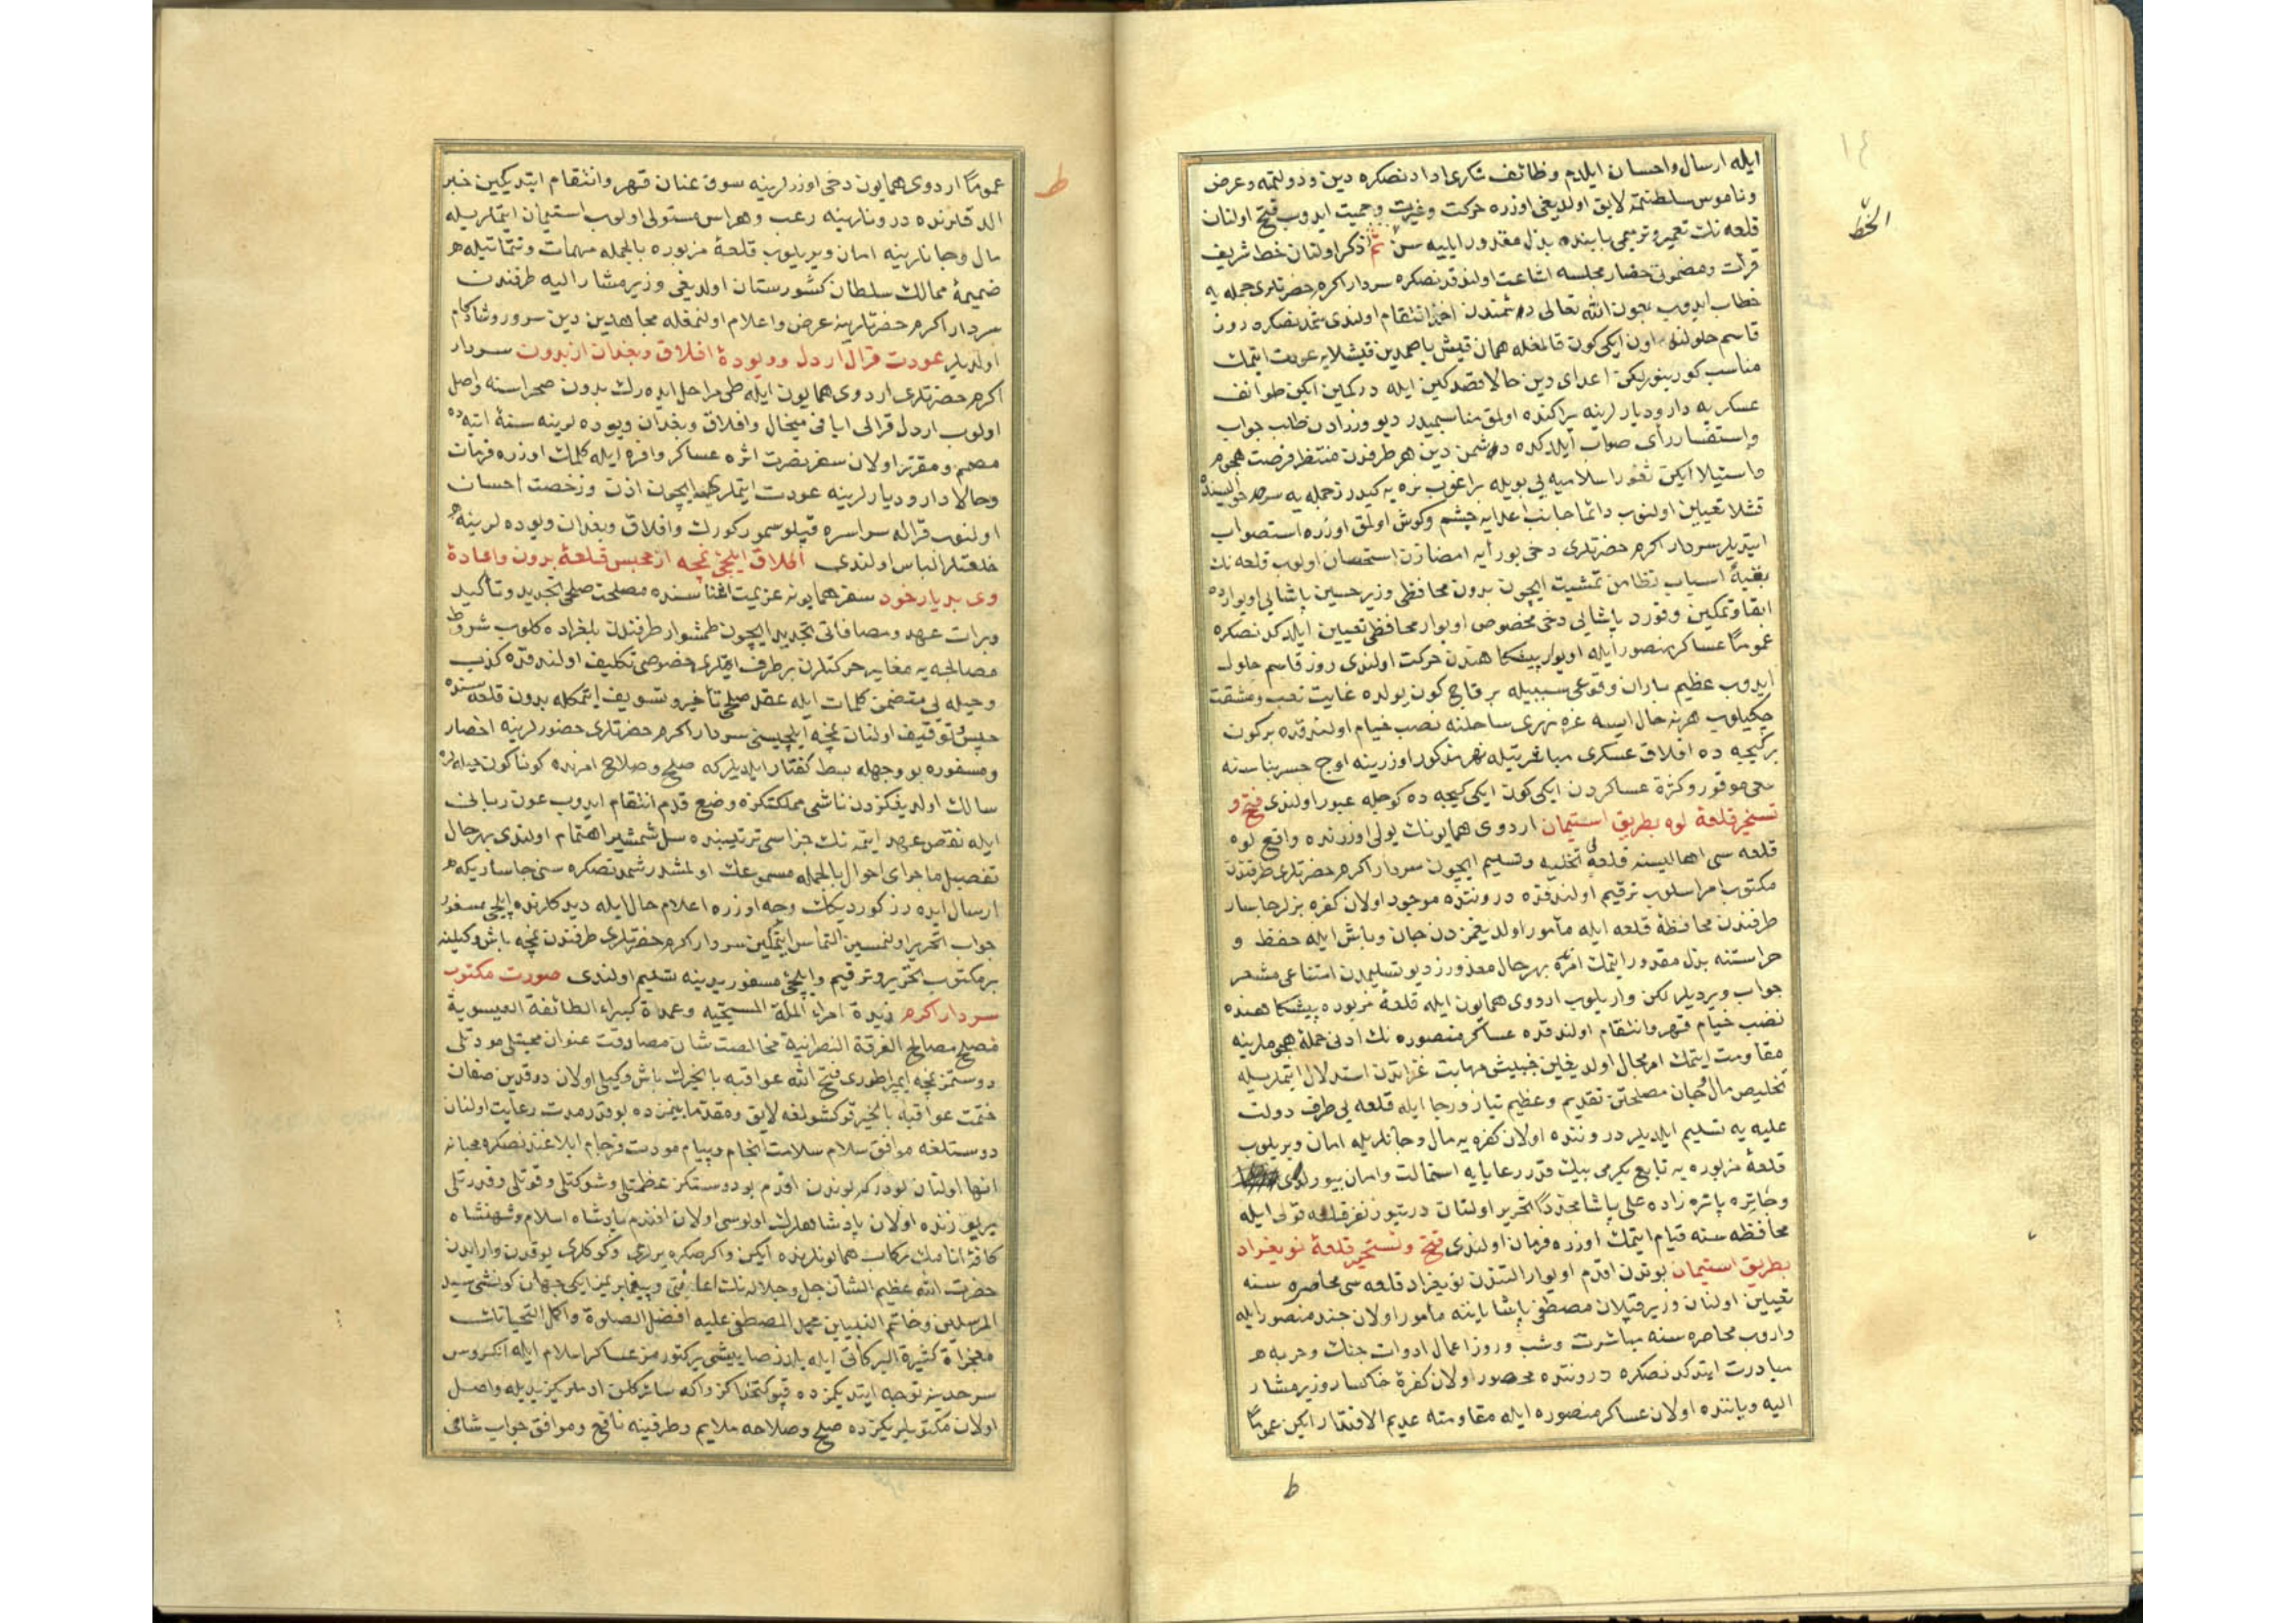 ايله ارسال واحسان ايلدم وظائف شكرى ادادنصكره دين ودولتمه وعرض
وناموس سلطنتمه لايق اولديغى اوزره حركت وغيرت وحميت ايدوب فتح اولنان
قلعه نك تعمير وترميمى بابنده بذل مقدور ايليه سن ثم ذكر اولنان خط شريف
قرائت ومضمونى حضار مجلسه اشاعت اولندقدنصكره سردار اكرم حضرتلرى جمله يه
خطاب ايدوب بعون الله تعالى دشمندن اخذ انتقام اولندى شمدنصكره روز
قاسم حلولنه اون ايكى كون قالمغله همان قيش باصمدين قيشلايه عودت ايتمك
مناسب كورينوريكن اعداى دين حالا قصد كين ايله در كمين ايكن طوائف
عسكريه دار وديارلرينه پراكنده اولمق مناسبميدر ديو وزرادن طالب جواب
واستفسار رأى صواب ايلدكده دشمن دين هر طرفدن منتظر فرصت هجوم
واستيلا ايكن ثغور اسلاميه يى بويله براغوب نره يه كيدرز جمله يه سرحد حواليسنده
قشلا تعيين اولنوب دائما جانب اعدايه چشم وكوش اولمق اوزره استصواب
ايتديلر سردار اكرم حضرتلرى دخى بو رأيه امضازن استحسان اولوب قلعه نك
بقيه اسباب نظامن تمشيت ايچون بدون محافظى وزير حسين پاشايى اويوارده
ابقا وتمكين وقورد پاشايى دخى مخصوص اويوار محافظى تعيين ايلدكدنصكره
عموما عساكر منصور ايله اويوار پيشكاهندن حركت اولندى روز قاسم حلول
ايدوب عظيم باران وقوعى سببيله بر قاچ كون يولده غايت تعب ومشقت
چكيلوب هر نه حال ايسه غره نهرى ساحلنه نصب خيام اولندقده بر كون
بر كيجه ده افلاق عسكرى مباشرتيله نهر مذكور اوزرينه اوچ جسر بناسنه
سعى موفور وكثرة عساكردن ايكى كون ايكى كيجه ده كوجله عبور اولندى فتح و
تسخير قلعهٔ لوه بطريق استيمان اردوى همايونك يولى اوزرنده واقع لوه
قلعه سى اهاليسنه قلعه يى تخليه وتسليم ايچون سردار اكرم حضرتلرى طرفندن
مكتوب امر اسلوب ترقيم اولندقده دروننده موجود اولان كفره بزلر جاسار
طرفندن محافظهٔ قلعه ايله مأمور اولديغمزدن جان وباش ايله حفظ و
حراستنه بذل مقدور ايتمك امرنده بهرحال معذورز ديو تسليمدن امتناعى مشعر
جواب ويرديلر لكن واريلوب اردوى همايون ايله قلعهٔ مزبوره پيشكاهنده
نصب خيام قهر وانتقام اولندقده عساكر منصوره نك ادنى حمله هجوملرينه
مقاومت ايتمك امر محال اولديغين غزاتدن استدلال ايتملريله
تخليص مال وجان مصلحتن تقديم وعظيم نياز ورجا ايله قلعه يى طرف دولت
عليه يه تسليم ايلديلر دروننده اولان كفره يه مال وجانلريله امان ويريلوب
قلعهٔ مزبوره يه تابع يكرمى بيك قدر رعايايه استمالت وامان بيورلدى
وجاتره پاتره زاده على پاشا مجددا تحرير اولنان درتيوز نفر قلعه قولى ايله
محافظه سنه قيام ايتمك اوزره فرمان اولندى فتح وتسخير قلعهٔ نويغراد
بطريق استيمان بوندن اقدم اويوار التندن نويغراد قلعه سى محاصره سنه
تعيين اولنان وزير قپلان مصطفى پاشا ياننه مأمور اولان جند منصور ايله
واروب محاصره سنه مباشرت وشب وروز اعمال ادوات جنك وحربه
مبادرت ايتدكدنصكره دروننده محصور اولان كفرهٔ خاكسار وزير مشار
اليه وياننده اولان عساكر منصوره ايله مقاومته عديم الاقتدار ايكن عموما
ط
الخط
١٤
عموما اردوى همايون دخى اوزرلرينه سوق عنان قهر وانتقام ايتديكين خبر
الدقلرنده درونلرينه رعب وهراس مستولى اولوب استيمان ايتملريله
مال وجانلرينه امان ويريلوب قلعهٔ مزبوره بالجمله مهمات وتتماتيله
ضميمهٔ ممالك سلطان كشورستان اولديغى وزير مشار اليه طرفندن
سردار اكرم حضرتلرينه عرض واعلام اولنمغله مجاهدين دين سرور وشادكام
اولديلر عودت قرال اردل وويودهٔ افلاق وبغدان از بدون سردار
اكرم حضرتلرى اردوى همايون ايله طى مراحل ايده رك بدون صحراسنه واصل
اولوب اردل قرالى اپافى ميخال وافلاق وبغدان ويوده لرينه سنهٔ اتيه ده
مصمم ومقرر اولان سفر نصرت اثره عساكر وافره ايله كلمك اوزره فرمان
وحالا دار وديارلرينه عودت ايتملرى ايچون اذن ورخصت احسان
اولنوب قراله سراسره قپلو سمور كورك وافلاق وبغدان ويوده لرينه
خلعتلر الباس اولندى اطلاق ايلچئ نمچه از محبس قلعهٔ بدون واعادهٔ
وى بديار خود سفر همايونه عزيمت اثناسنده مصلحت صلحى تجديد وتأكيد
وبرات عهد ومصافاتى تجديد ايچون طمشوار طرفندن بلغراده كلوب شروط
مصالحه يه مغاير حركتلرن برطرف ايتملرى خصوصى تكليف اولندقده كذب
وحيله يى متضمن كلمات ايله عقد صلحى تأخير وتسويف ايتمكله بدون قلعه سنده
حبس وتوقيف اولنان نمچه ايلچيسنى سردار اكرم حضرتلرى حضورلرينه احضار
ومسفوره بو وجهله بسط كفتار ايلديلركه صلح وصلاح امرنده كوناكون حيله لره
سالك اولديغكزدن ناشى مملكتكزه وضع قدم انتقام ايدوب عون ربانى
ايله نقض عهد ايتمه نك جزاسى ترتيبنده سل شمشير اهتمام اولندى بهرحال
تفصيل ماجراى احوال بالجمله مسموعك اولمشدر شمدنصكره سنى جاساريكه
ارسال ايده رز كورديكك وجه اوزره اعلام حال ايله ديدكلرنده ايلچئ مسفور
جواب تحرير اولنمسين التماس ايتمكين سردار اكرم حضرتلرى طرفندن نمچه باش وكيلنه
بر مكتوب تحرير وترقيم وايلچئ مسفور يدينه تسليم اولندى صورت مكتوب
سردار اكرم زبدة امراء الملة المسيحيه وعمدة كبراء الطائفة العيسوية
مصلح مصالح الفرقة النصرانية مخالصت شان مصادقت عنوان محبتلى مودتلى
دوستمز نمچه ايمپراطورى فتح الله عواقبه بالخيرك باش وكيلى اولان
ختمت عواقبه بالخير قوكشولغه لايق ومقدما بينمزده بو قدر مدت رعايت اولنان
دوستلغه موافق سلام سلامت انجام وپيام مودت فرجام ابلاغندنصكره محبانه
انها اولنان اولدركه بوندن اقدم بو دوستكز عظمتلى وشوكتلى وقوتلى وقدرتلى
ير يوزنده اولان پادشاهلرك اولوسى اولان افندم پادشاه اسلام وشهنشاه
كافهٔ انامك ركاب همايونلرنده ايكن
حضرت الله عظيم الشان جل وجلاله نك وپيغمبريمز ايكى جهان كونشى سيد
المرسلين وخاتم النبيين محمد المصطفى عليه افضل الصلوة واكمل التحياتك
معجزاة كثيرة البركاتى ايله عساكر اسلام ايله انكروس
سرحدينه توجه ايتديكمزده قپوكتخداكز واكه سائر كلن ادملريكز يديله واصل
اولان مكتوبلريكزده صلح وصلاحه ملايم وطرفينه نافع وموافق جواب شافى
ط